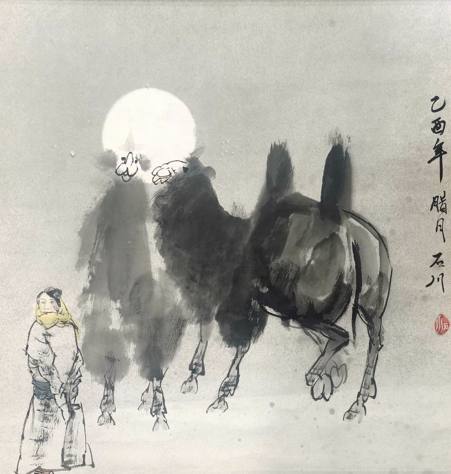 乙酉年腊月石川